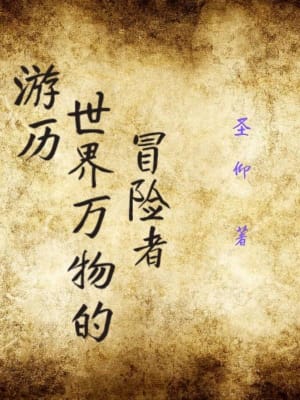 游历
世界万物的
冒险者
圣仰著